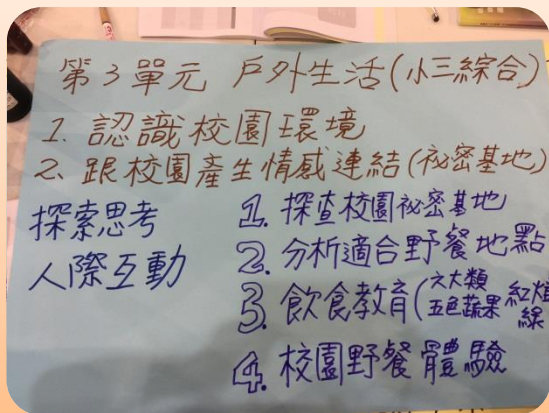 第3單元 戶外生活(小三綜合)
1. 認識校園環境
2. 跟校園產生情感連結(祕密基地)
探索思考
人際互動
1. 探查校園祕密基地
2. 分析適合野餐地點
3. 飲食教育(六大類 五色蔬果 紅 線
4. 校園野餐體驗